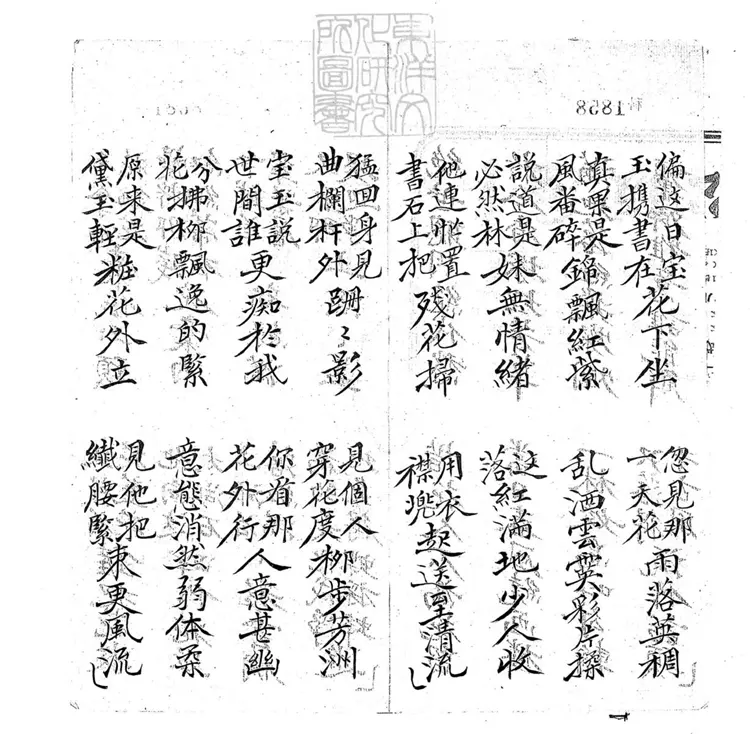 東洋文
化研究
所圖書
偏這日宝玉携書在花下坐
忽見那一天花雨落英稠
真果是風畨碎錦飄紅紫
乱洒雲霙彩片揉
説道是必然林妹無情緒
这落紅滿地少人收
他連忙置書石上把残花掃
用衣襟兜起送至清流
猛回身見曲欄杆外跚〻影
見個人穿花度柳步芳洲
宝玉説世間誰更痴於我
你看那花外行人意甚幽
分花拂柳飄逸的緊
意態消然弱体柔
原来是黛玉輕粧花外立
見他把纖腰緊束更風流